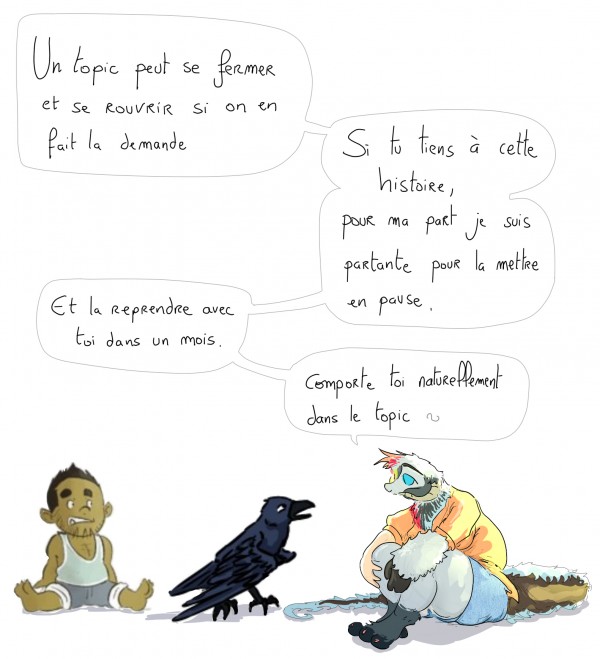 Un topic peut se fermer
et se rouvrir si on en
fait la demande
Si tu tiens à cette
histoire,
pour ma part je suis
partante pour la mettre
en pause.
Et la reprendre avec
toi dans un mois.
Comporte toi naturellement
dans le topic ~